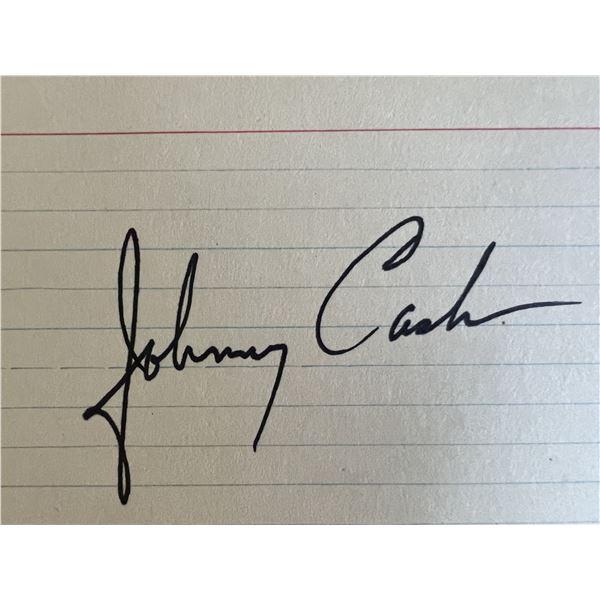 Johnny Cash